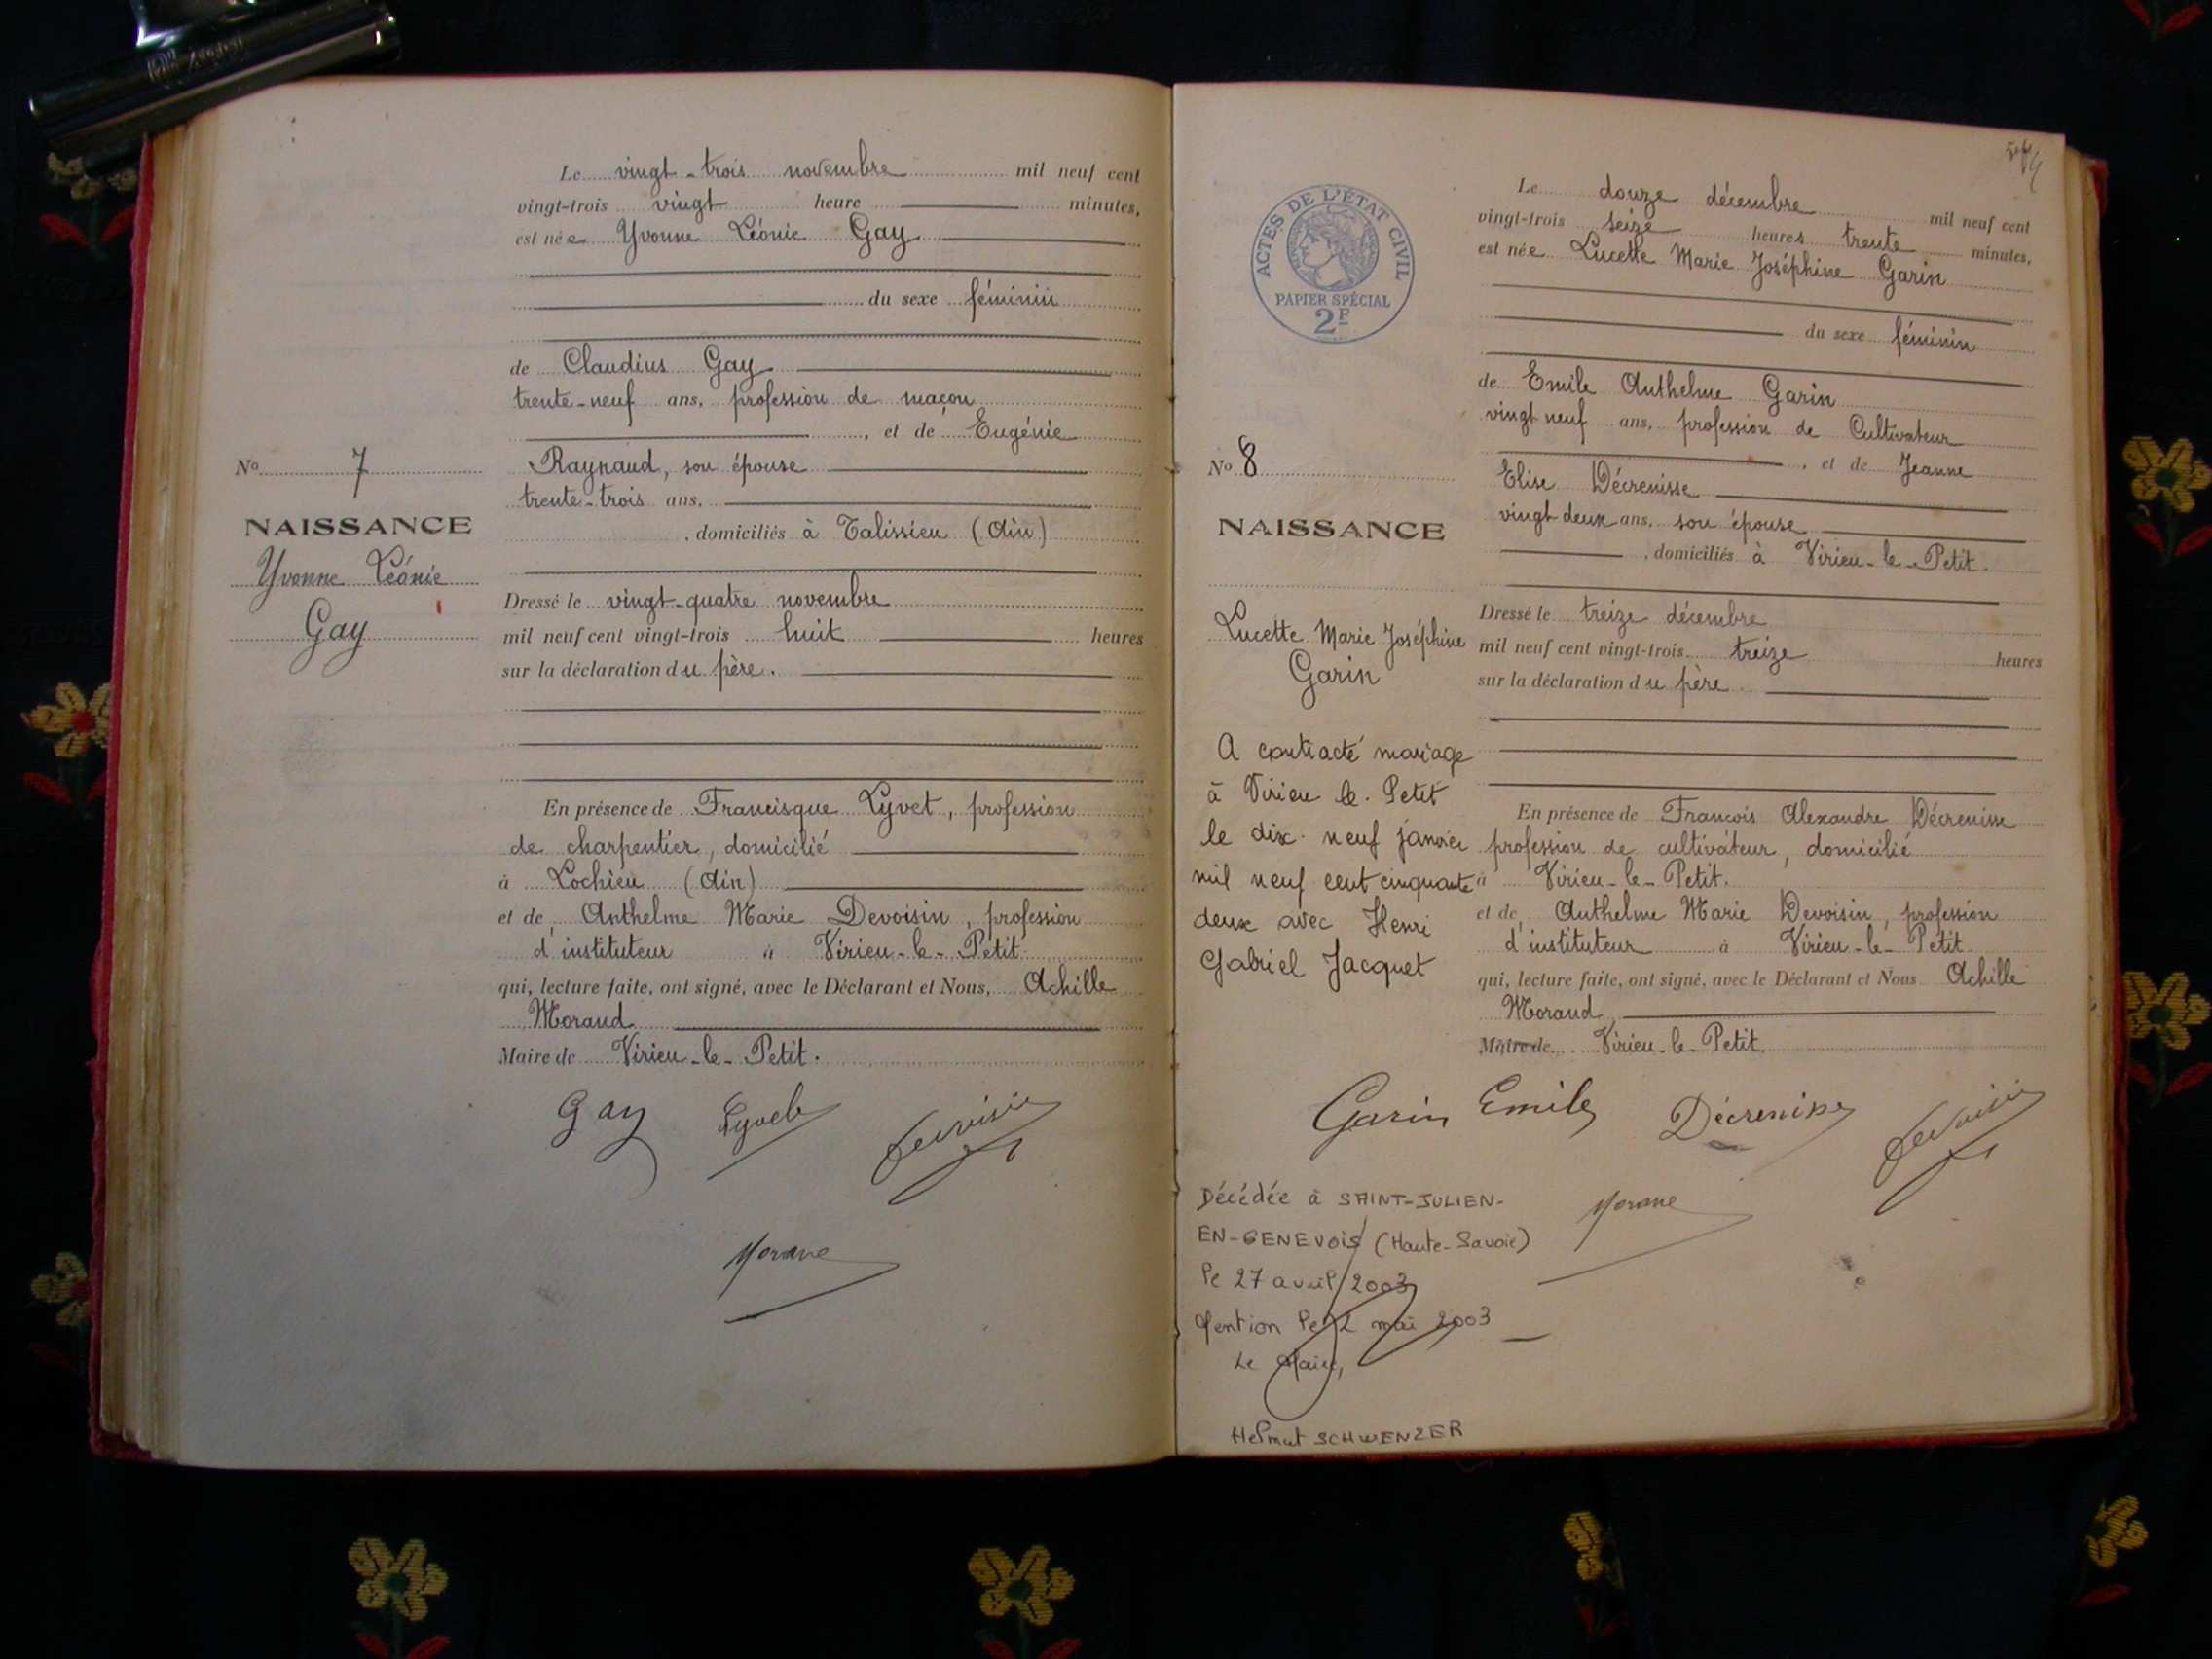 Le vingt-trois novembre mil neuf cent
vingt-trois vingt heure minutes,
est née Yvonne Léonie Gay
du sexe féminin
de Claudius Gay
trente-neuf ans, profession de maçon
, et de Eugénie
Raynaud, son épouse
trente-trois ans,
, domiciliés à Talissieu (Ain)
Dressé le vingt-quatre novembre
mil neuf cent vingt-trois huit heures
sur la déclaration du père.
En présence de Francisque Lyvet, profession
de charpentier, domicilié
à Lochieu (Ain)
et de Anthelme Marie Devoisin, profession
d'instituteur à Virieu-le-Petit
qui, lecture faite, ont signé, avec le Déclarant et Nous, Achille
Morand
Maire de Virieu-le-Petit.
No 7
NAISSANCE
Yvonne Léonie
Gay
Gay Lyvet Devoisin
ACTES DE L'ÉTAT CIVIL
PAPIER SPÉCIAL
2F
Le douze décembre mil neuf cent
vingt-trois seize heures trente minutes,
est née Lucette Marie Joséphine Garin
du sexe féminin
de Emile Anthelme Garin
vingt neuf ans, profession de Cultivateur
, et de Jeanne
Elise Décrenisse
vingt deux ans, son épouse
, domiciliés à Virieu-le-Petit.
Dressé le treize décembre
mil neuf cent vingt-trois treize heures
sur la déclaration du père.
En présence de François Alexandre Décrenisse
profession de cultivateur, domicilié
à Virieu-le-Petit.
et de Anthelme Marie Devoisin, profession
d'instituteur à Virieu-le-Petit
qui, lecture faite, ont signé, avec le Déclarant et Nous Achille
Morand
Maire de Virieu-le-Petit.
No 8
NAISSANCE
Lucette Marie Joséphine
Garin
A contracté mariage
à Virieu le Petit
le dix-neuf janvier
mil neuf cent cinquante
deux avec Henri
Gabriel Jacquet
Garin Emile Décrenisse Devoisin
Décédée à SAINT-JULIEN-
EN-GENEVOIS (Haute-Savoie)
le 27 avril 2003
Mention le 2 mai 2003
Le Maire,
Helmut SCHWENZER